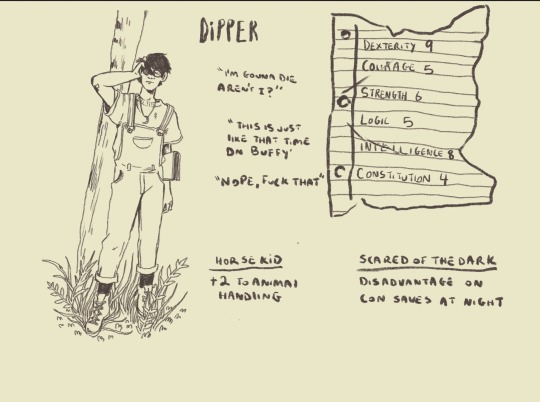 DIPPER
"I'M GONNA DIE
AREN'T I?"
"THIS IS JUST
LIKE THAT TIME
ON BUFFY'
"NOPE, FUCK THAT"
DEXTERITY 9
COURAGE 5
STRENGTH 6
LOGIC 5
INTELLIGENCE 8
CONSTITUTION 4
HORSE KID
+2 TO ANIMAL
HANDLING
SCARED OF THE DARK
DISADVANTAGE ON
CON SAVES AT NIGHT